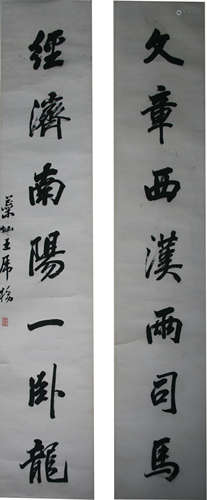 文章西漢兩司馬
經濟南陽一卧龍